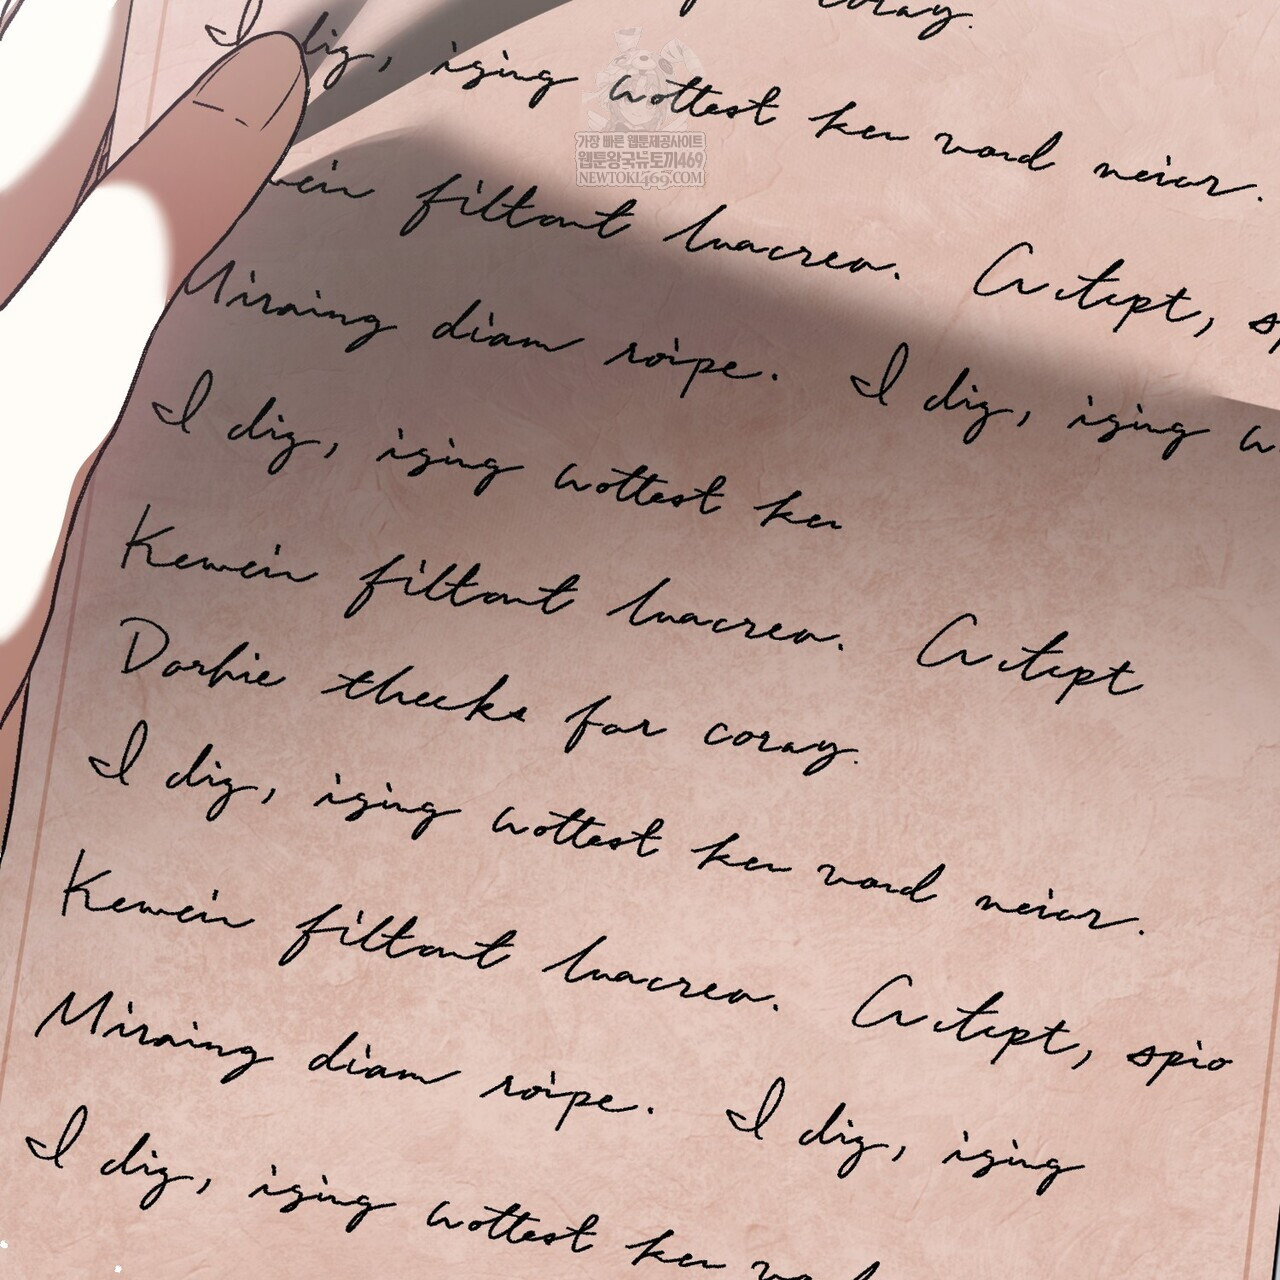 coray.
I dig, iging wottest ken vord neior.
wein filtont luacreo. Critept, sp
Miraing diam roipe. I dig, iging w
I dig, iging wottest ken
Kewein filtont luacreo. Critept
Dorhie theeks for coray.
I dig, iging wottest ken vord neior.
Kewein filtont luacreo. Critept, spio
Miraing diam roipe. I dig, iging
I dig, iging wottest ken
가장 빠른 웹툰제공사이트
웹툰왕국뉴토끼469
NEWTOKI469.COM